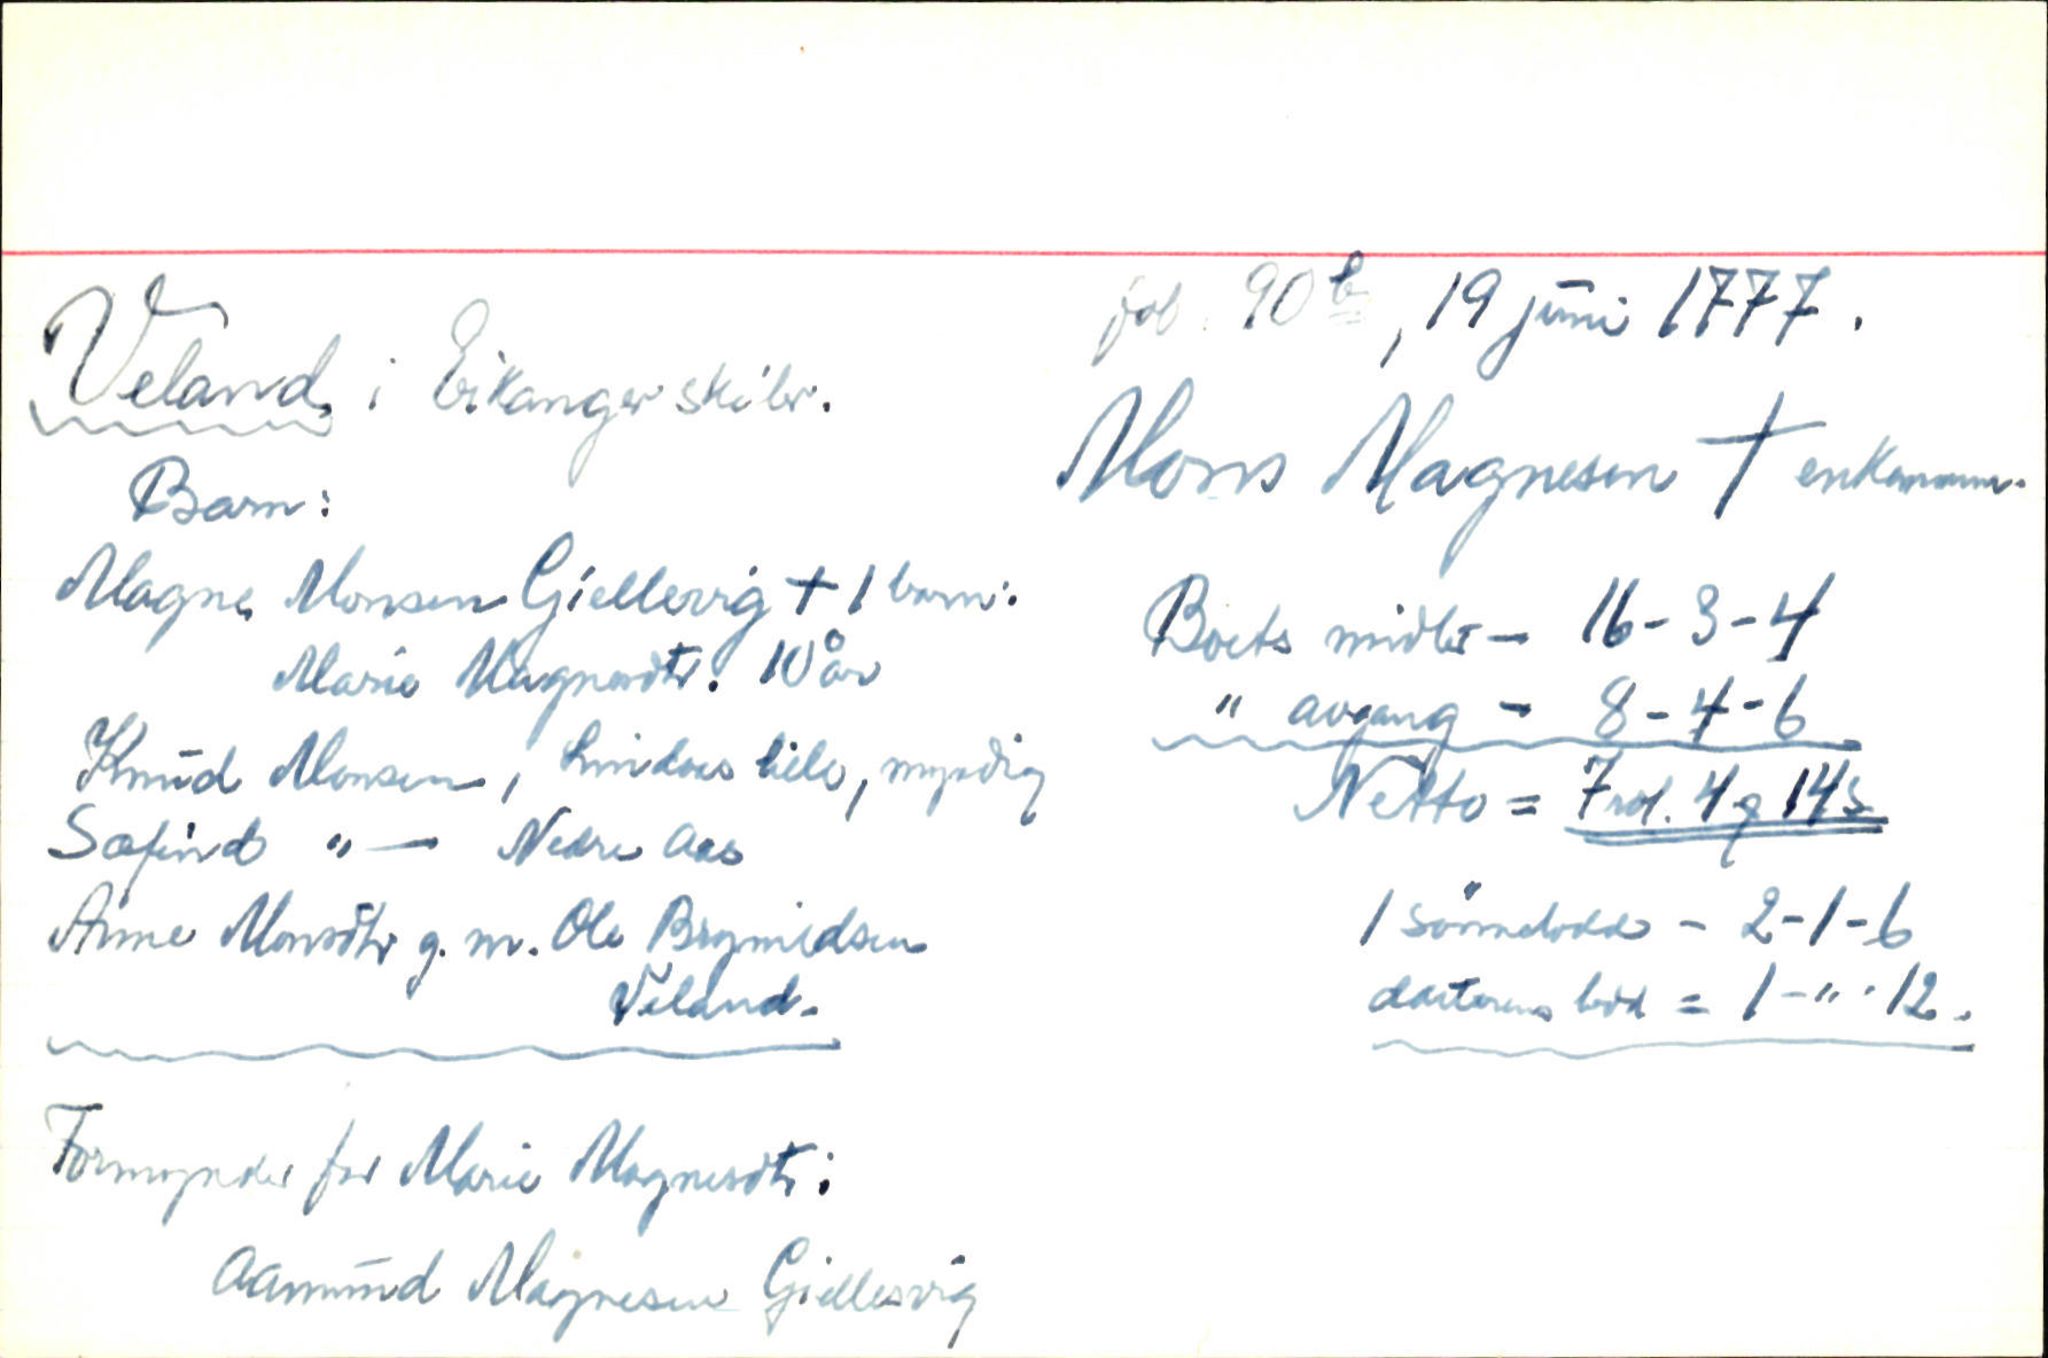 fol. 90b, 19 juni 1777.
Veland i Eikanger skibr.
Mons Magnesen † enkemann.
Barn:
Magne Monsen Giellesvig † 1 barn:
Marie Magnesdtr. 10 år
Knud Monsen, Lindaas lille, myndig
Sæfind " — Nedre Aas
Anne Monsdtr g. m. Ole Brynildsen
Veland.
Formynder for Marie Magnesdtr:
Aamund Magnesen Giellesvig
Boets midler — 16 - 3 - 4
" avgang — 8 - 4 - 6
Netto = 7 rd. 4 ƒ 14 s
1 sönnelodd — 2 - 1 - 6
datterens lodd = 1 - " - 12.